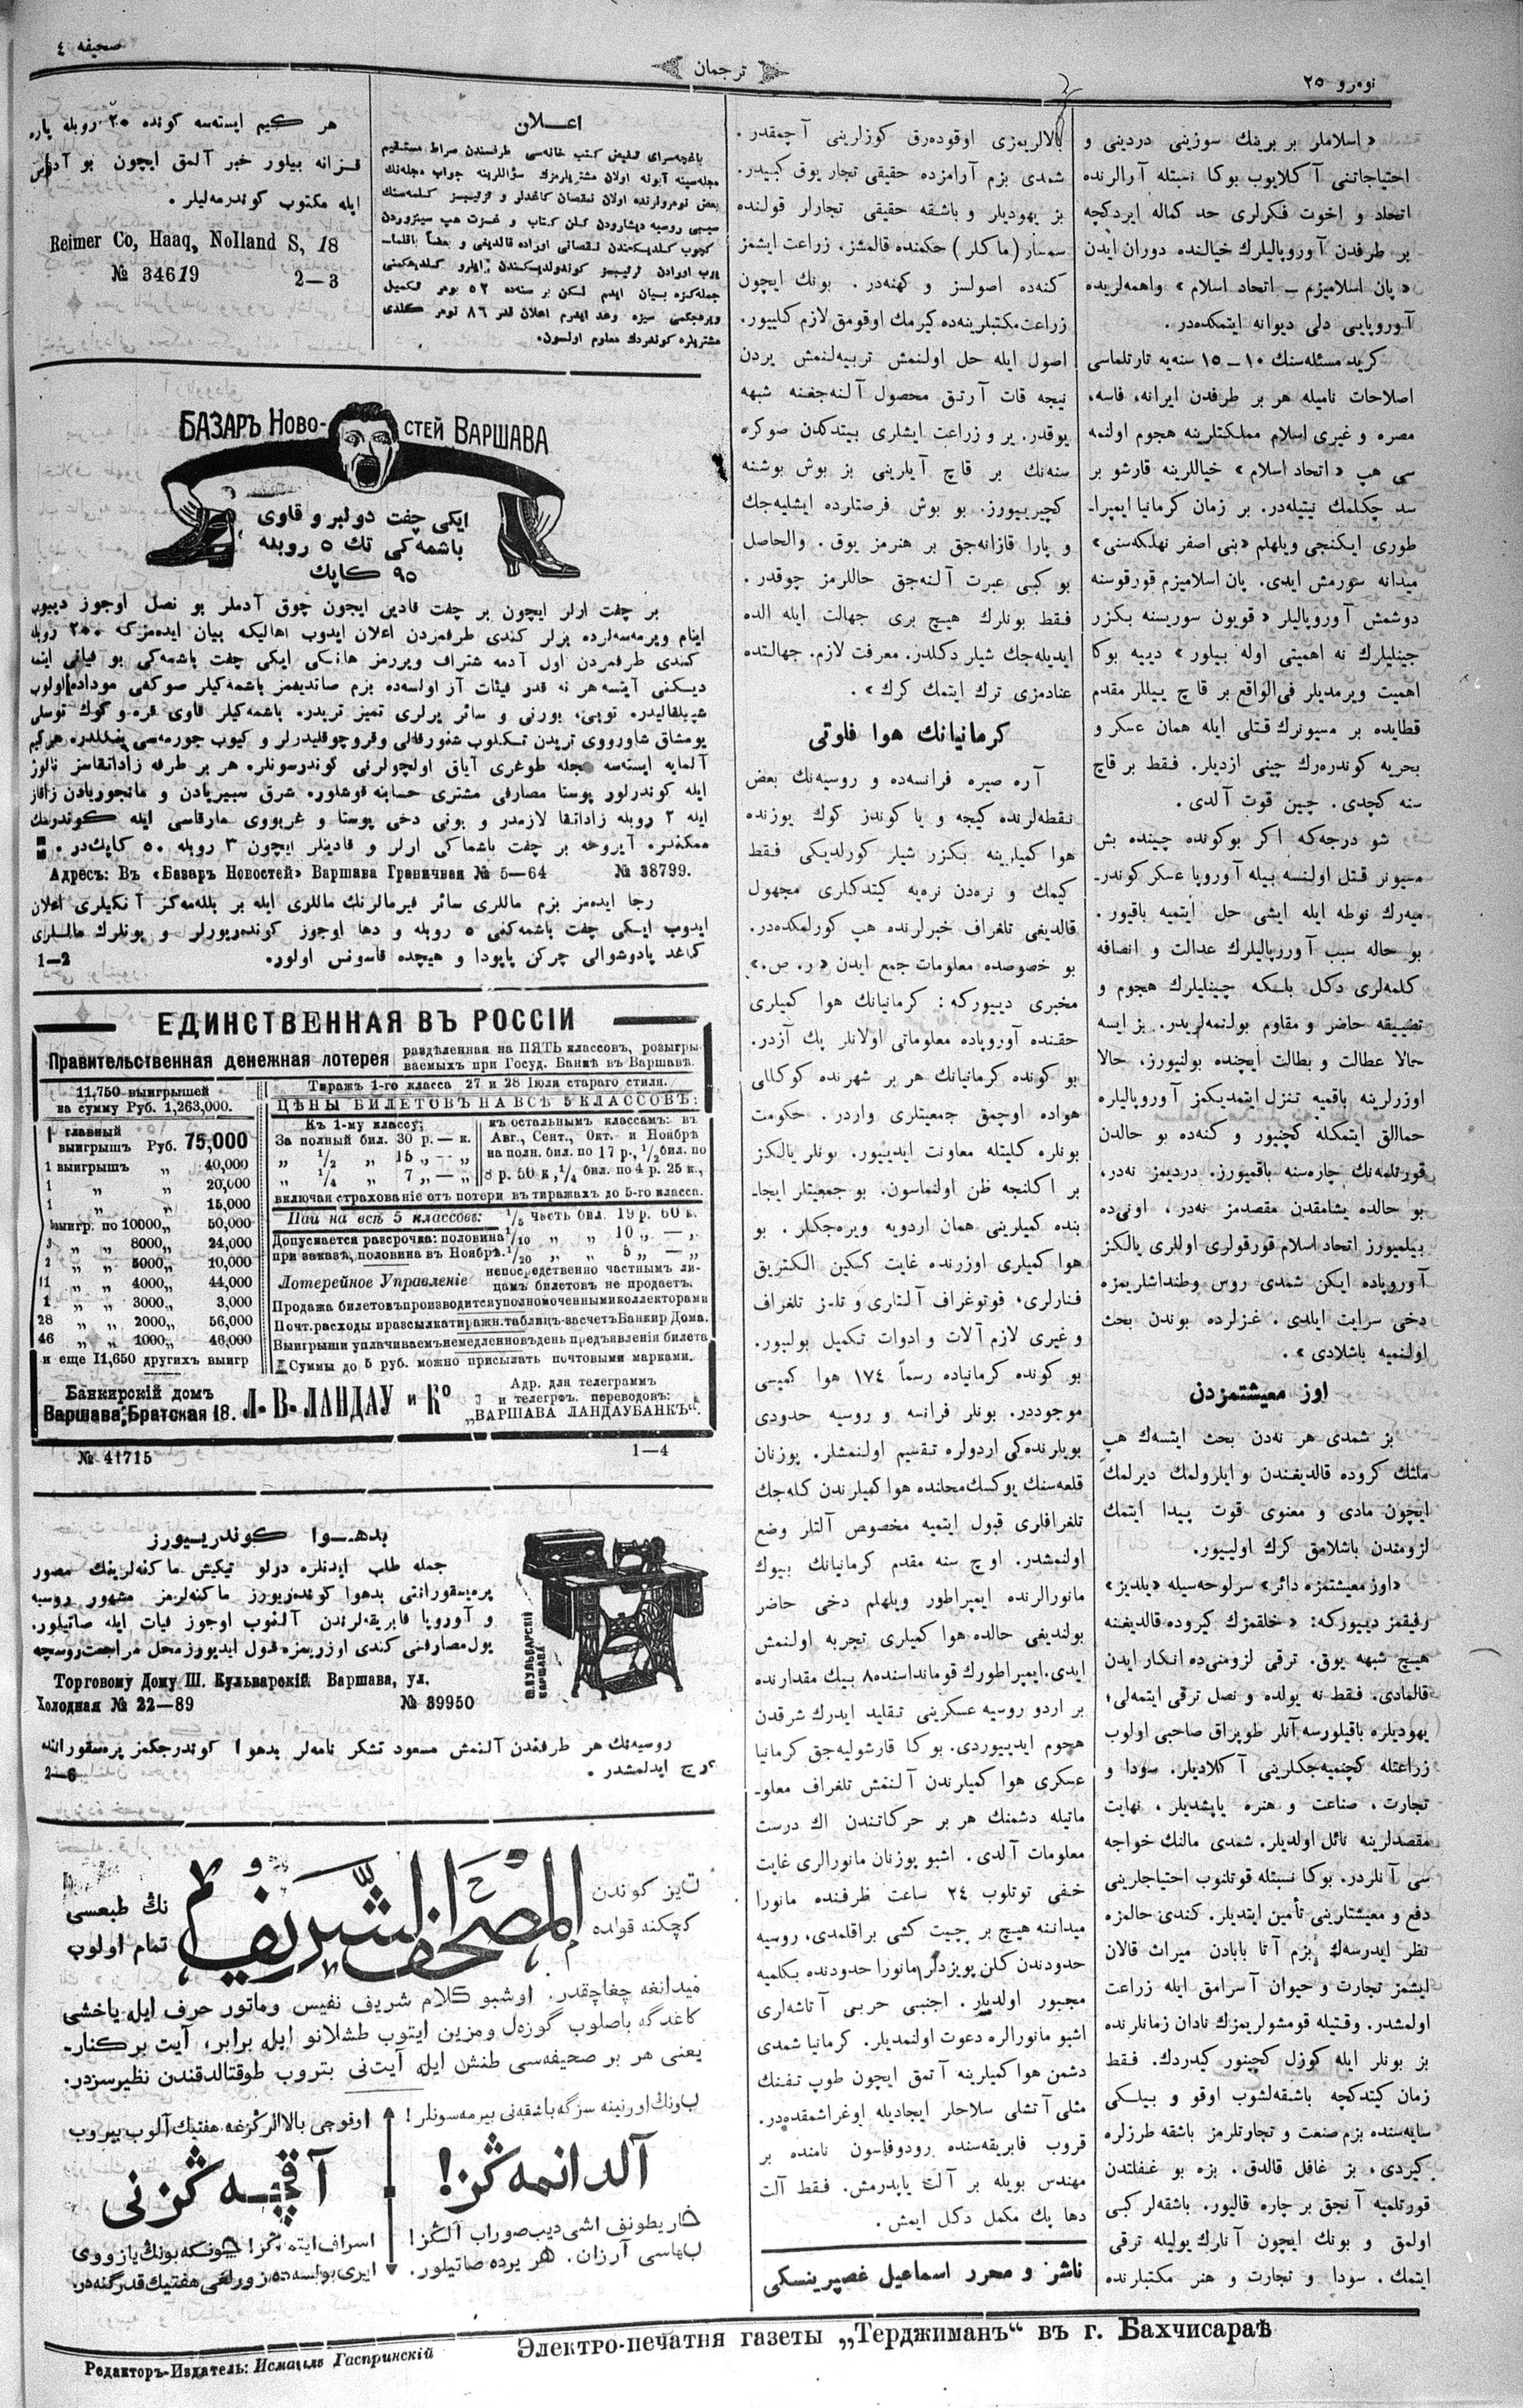 نومرو ٢٥
ترجمان
صحیفه ٤
«اسلاملر بر برینك سوزینی دردینی و
احتیاجاتنی آكلایوب بوكا نسبتله آرالرنده
اتحاد و اخوت فكرلری حد كماله ایردكچه
بر طرفدن آوروپالیلرك خیالنده دوران ایدن
«پان اسلامیزم — اتحاد اسلام» واهمه‌لریده
آوروپایی دلی دیوانه ایتمكده‌در.
كرید مسئله‌سنك ١٠—١٥ سنه‌یه تارتلماسی
اصلاحات نامیله هر بر طرفدن ایرانه، فاسه،
مصره و غیری اسلام مملكتلرینه هجوم اولنمه
سی هپ «اتحاد اسلام» خیاللرینه قارشو بر
سد چكلمك نیتیله‌در. بر زمان كرمانیا ایمپرا‌ـ
طوری ایكنجی ویلهلم «بنی اصفر تهلكه‌سنی»
میدانه سورمش ایدی. پان اسلامیزم قورقوسنه
دوشمش آوروپالیلر «قویون سوریسنه بكزر
چینلیلرك نه اهمیتی اوله بیلور» دییه بوكا
اهمیت ویرمدیلر فی‌الواقع بر قاچ ییللر مقدم
قطایده بر مسیونرك قتلی ایله همان عسكر و
بحریه كوندره‌رك چینی ازدیلر. فقط بر قاچ
سنه كچدی. چین قوت آلدی.
شو درجه‌كه اكر بوكونده چینده بش
مسیونر قتل اولنسه بیله آوروپا عسكر كوندر‌ـ
میه‌رك نوطه ایله ایشی حل ایتمیه باقیور.
بو حاله سبب آوروپالیلرك عدالت و انصافه
كلمه‌لری دكل بلكه چینلیلرك هجوم و
تضییقه حاضر و مقاوم بولنمه‌لریدر. بز ایسه
حالا عطالت و بطالت ایچنده بولنیورز، حالا
اوزرلرینه باقمیه تنزل ایتمدیكمز آوروپالیلره
حماللق ایتمكله كچنیور و كنه‌ده بو حالدن
قورتلمه‌نك چاره‌سنه باقمیورز. دردیمز نه‌در،
بو حالده یشامقدن مقصدمز نه‌در، اونی‌ده
بیلمیورز اتحاد اسلام قورقولری اوللری یالكز
آوروپاده ایكن شمدی روس وطنداشلریمزه
دخی سرایت ایلدی. غزلرده بوندن بحث
اولنمیه باشلادی».
اوز معیشتمزدن
بز شمدی هر نه‌دن بحث ایتسه‌ك هپ
ملتك كروده قالدیغندن و ایلرولمك دیرلمك
ایچون مادی و معنوی قوت پیدا ایتمك
لزومندن باشلامق كرك اولییور.
«اوز معیشتمزه دائر» سرلوحه‌سیله «یلدیز»
رفیقمز دییوركه: «خلقمزك كیروده قالدیغنه
هیچ شبهه یوق. ترقی لزومنی‌ده انكار ایدن
قالمادی. فقط نه یولده و نصل ترقی ایتمه‌لی؛
یهودیلره باقیلورسه آنلر طوپراق صاحبی اولوب
زراعتله كچنمیه‌جكلرینی آكلادیلر. سودا و
تجارت، صناعت و هنره یاپشدیلر، نهایت
مقصدلرینه نائل اولدیلر. شمدی مالنك خواجه
سی آنلردر. بوكا نسبتله قوتلنوب احتیاجلرینی
دفع و معیشتارینی تأمین ایتدیلر. كندی حالمزه
نظر ایدرسه‌ك بزم آتا بابادن میراث قالان
ایشمز تجارت و حیوان آسرامق ایله زراعت
اولمشدر. وقتیله قومشولریمزك نادان زمانلرنده
بز بونلر ایله كوزل كچینور كیدردك. فقط
زمان كیتدكچه باشقه‌لشوب اوقو و بیلكی
سایه‌سنده بزم صنعت و تجارتلرمز باشقه طرزلره
كیردی، بز غافل قالدق. بزه بو غفلتدن
قورتلمیه آنجق بر چاره قالیور. باشقه‌لر كبی
اولمق و بونك ایچون آنارك یولیله ترقی
ایتمك. سودا و تجارت و هنر مكتبلرنده
بالالریمزی اوقوده‌رق كوزلرینی آچمقدر.
شمدی بزم آرامزده حقیقی تجار یوق كبیدر.
بز یهودیلر و باشقه حقیقی تجارلر قولنده
سمسار (ماكلر) حكمنده قالمشز. زراعت ایشمز
كنه‌ده اصولسز و كهنه‌در. بونك ایچون
زراعت مكتبلرینه‌ده كیرمك اوقومق لازم كلییور.
اصول ایله حل اولنمش تربیه‌لنمش یردن
نیجه قات آرتق محصول آلنه‌جغنه شبهه
یوقدر. یر و زراعت ایشلری بیتدكدن صوكره
سنه‌نك بر قاچ آیلرینی بز بوش بوشنه
كچیرییورز. بو بوش فرصتلرده ایشلیه‌جك
و پارا قازانه‌جق بر هنرمز یوق. والحاصل
بو كبی عبرت آلنه‌جق حاللرمز چوقدر.
فقط بونلرك هیچ بری جهالت ایله الده
ایدیله‌جك شیلر دكلدر. معرفت لازم. جهالتده
عنادمزی ترك ایتمك كرك».
كرمانیانك هوا فلوتی
آره صیره فرانسه‌ده و روسیه‌نك بعض
نقطه‌لرنده كیجه و یا كوندز كوك یوزنده
هوا كمیلرینه بكزر شیلر كورلدیكی فقط
كیمك و نره‌دن نره‌یه كیتدكلری مجهول
قالدیغی تلغراف خبرلرنده هپ كورلمكده‌در.
بو خصوصده معلومات جمع ایدن «ر. ص.»
مخبری دییوركه: كرمانیانك هوا كمیلری
حقنده آوروپاده معلوماتی اولانلر پك آزدر.
بو كونده كرمانیانك هر بر شهرنده كوكللی
هواده اوچمق جمعیتلری واردر. حكومت
بونلره كلیتله معاونت ایدییور. بونلر یالكز
بر اكلنجه ظن اولنماسون. بو جمعیتلر ایجا‌ـ
بنده كمیلرینی همان اردویه ویره‌جكلر. بو
هوا كمیلری اوزرنده غایت كسكین الكتریق
فنارلری، فوتوغراف آلتاری و تلسز تلغراف
و غیری لازم آلات و ادوات تكمیل بولییور.
بو كونده كرمانیاده رسماً ١٧٤ هوا كمیسی
موجوددر. بونلر فرانسه و روسیه حدودی
بویلرنده‌كی اردولره تقسیم اولنمشلر. پوزنان
قلعه‌سنك یوكسك محلنده هوا كمیلرندن كله‌جك
تلغرافلری قبول ایتمیه مخصوص آلتلر وضع
اولنمشدر. اوچ سنه مقدم كرمانیانك بیوك
مانورالرنده ایمپراطور ویلهلم دخی حاضر
بولندیغی حالده هوا كمیلری تجربه اولنمش
ایدی. ایمپراطورك قوماندا‌سنده ٨ بیك مقدارنده
بر اردو روسیه عسكرینی تقلید ایدرك شرقدن
هجوم ایدییوردی. بوكا قارشولیه‌جق كرمانیا
عسكری هوا كمیلرندن آلنمش تلغراف معلو‌ـ
ماتیله دشمنك هر بر حركاتندن اك درست
معلومات آلدی. اشبو پوزنان مانورالری غایت
خفی توتلوب ٢٤ ساعت ظرفنده مانورا
میداننه هیچ بر چیت كشی براقلمدی، روسیه
حدودندن كلن پویزدلر مانورا حدودنده بكلمیه
مجبور اولدیلر. اجنبی حربی آتاشه‌لری
اشبو مانورالره دعوت اولنمدیلر. كرمانیا شمدی
دشمن هوا كمیلرینه آتمق ایچون طوپ تفنك
مثلی آتشلی سلاحلر ایجادیله اوغراشمقده‌در.
قروپ فابریقه‌سنده رودوفلسون نامنده بر
مهندس بویله بر آلت یاپدرمش. فقط آلت
دها پك مكمل دكل ایمش.
ناشر و محرر اسماعیل غصپرینسكی
اعـلان
باغچه‌سرای كتب خانه‌سی طرفندن صراط مستقیم
مجله‌سینه آبونه اولان مشتریلرمزك سؤاللرینه جواب مجله‌نك
بعض نومرولرنده اولان نقصان كاغدلر و ترتیبسز كلمه‌سنك
سببی روسیه دیشارودن كلن كتاب و غزت هپ سینزوردن
كچوب كلدیكمندن نقصانی اوراده قالدیغی و بعضاً باقلما‌ـ
جمله‌كزه بیان ایدم لكن بر سنه‌ده ٥٢ نومر تكمیل
ویره‌جكمی سیزه وعد ایدرم اعلان قدر ٨٦ نومر كلدی
مشتریلره كوندردك معلوم اولسون.
هر كیم ایسته‌سه كونده ٢٠ روبله پاره
قزانه بیلور خبر آلمق ایچون بو آدرس
ایله مكتوب كوندرمه‌لیلر.
Reimer Co, Haaq, Nolland S, 18
№ 34619 2—3
БАЗАРЪ НОВОСТЕЙ ВАРШАВА
ایكی چفت دولبر و قاوی
باشمه‌كی تك ٥ روبله
٩٥ كاپك
بر چفت ارلر ایچون بر چفت قادین ایچون چوق آدملر بو نصل اوجوز دییوب
اینام ویرمه‌سه‌لرده بزلر كندی طرفمزدن اعلان ایدوب اهالیكه بیان ایده‌مزكه ٢٠٠ روبله
كندی طرفمزدن اول آدمه شتراف ویررمز هانكی ایكی چفت باشمه‌كی بو فیاتی ایتمه
دیكنی آیتسه هر نه قدر فیئات آز اولسه‌ده بزم صاتدیغمز باشمه‌كیلر صوكغی موداده اولوب
شیبلقالیدر. توپی، بورنی و سائر یرلری تمیز تریدر. باشمه‌كیلر قاوی قره و كوك توسلی
آلمایه ایسته‌سه عجله طوغری آیاق اولچولرنی كوندرسونلر. هر بر طرفه زاداتقاسز نالوژ
ایله كوندرلور پوستا مصارفی مشتری حسابنه قوشلور. شرق سبیریادن و مانجوریادن زاقاز
ایله ٢ روبله زاداتقا لازمدر و بونی دخی پوستا و غربووی مارقاسی ایله كوندرمك
ممكندر. آیروجه بر چفت باشماكی ارلر و قادینلر ایچون ٣ روبله ٥٠ كاپكدر.
Адресъ: Въ «Базаръ Новостей» Варшава Граничвая № 5—64 № 38799.
رجا ایده‌مز بزم ماللری سائر فیرمالرنك ماللری ایله بر بلله‌مه‌كز آنكیلری اعلان
ایدوب ایكی چفت باشمه‌كنی ٥ روبله و دها اوجوز كوندریورلر و بونلرك ماللری
كاغد پادوشوالی چركن پاپودا و هیچده قاسونس اولور. 1—2
ЕДИНСТВЕННАЯ ВЪ РОССІИ
Правительственная денежная лотерея раздѣленная на ПЯТЬ классовъ, розыгры
ваемыхъ при Госуд. Банкѣ въ Варшавѣ.
11,750 выигрышей
на сумму Руб. 1,263,000.
1 главный
выигрышъ Руб. 75,000
1 выигрышъ „ 40,000
1 „ „ 20,000
1 „ „ 15,000
выигр. по 10000„ 50,000
3 „ „ 8000„ 24,000
2 „ „ 5000„ 10,000
11 „ „ 4000„ 44,000
1 „ „ 3000„ 3,000
28 „ „ 2000„ 56,000
46 „ „ 1000„ 46,000
и еще 11,650 другихъ выигр
Тиражъ 1-го класса 27 и 28 Іюля стараго стиля.
ЦѢНЫ БИЛЕТОВЪ НА ВСѢ 5 КЛАССОВЪ:
Къ 1-му классу:
За полный бил. 30 р.— к.
„ 1/2 „ 15 „ — „
„ 1/4 „ 7 „ — „
къ остальнымъ классамъ: въ
Авг., Сент., Окт. и Ноябрѣ
на полн. бил. по 17 р., 1/2 бил. по
8 р. 50 к., 1/4 бил. по 4 р. 25 к.,
включая страхованіе отъ потери въ тиражахъ до 5-го класса.
Паи на всѣ 5 классовъ: 1/5 часть бил. 19 р. 60 к.
Допускается разсрочка: половина 1/10 „ „ 10 „ — „
при заказѣ, половина въ Ноябрѣ. 1/20 „ „ 5 „ — „
Лотерейное Управленіе непосредственно частнымъ ли-
цамъ билетовъ не продаетъ.
Продажа билетовъ производится уполномоченными коллекторами
Почт. расходы и разсылка тиражн. таблицъ-за счетъ Банкир Дома.
Выигрыши уплачиваемъ немедленно въ день предъявленія билета
Суммы до 5 руб. можно присылать почтовыми марками.
Банкирскій домъ
Варшава, Братская 18.
Л. В. ЛАНДАУ и Ко
Адр. для телеграммъ
и телегрф. переводовъ:
„ВАРШАВА ЛАНДАУБАНКЪ“.
№ 41715 1—4
بدهـوا كوندرییورز
جمله طلب ایدنلره درلو تیكیش ماكنه‌لرینك مصور
پره‌یسقورانتی بدهوا كوندرییورز ماكنه‌لرمز مشهور روسیه
و آوروپا فابریقه‌لرندن آلنوب اوجوز فیات ایله صاتیلور.
یول مصارفنی كندی اوزریمزه قبول ایدیورز محل مراجعت روسچه
Торговому Дому Ш. Кульварскій Варшава, ул.
Холодная № 22—89 № 39950
Ш. КУЛЬВАРСКІЙ
ВАРШАВА
روسیه‌نك هر طرفندن آلنمش مسعود تشكر نامه‌لر بدهوا كوندرجكمز پره‌یسقورانتله
درج ایدلمشدر. 2—6
تیز كوندن
كچكنه قولده
المصحف الشريف
نڭ طبعسی
تمام اولوب
میدانغه چغاچقدر. اوشبو كلام شریف نفیس وماتور حرف ایله یاخشی
كاغدگه باصلوب گوزه‌ل ومزین ایتوب طشلانو ایله برابر، آیت بركنار‌ـ
یعنی هر بر صحیفه‌سی طنش ایله آیت‌نی بتروب طوقتالدقندن نظیرسزدر.
بونڭ اورنینه سزگه باشقه‌نی بیرمه‌سونلر!
آلدانمه‌ڭز!
خاریطونف اشی دیب صوراب آلڭز!
بهاسی آرزان. هر یرده صاتیلور.
اوقوچی بالالرڭزغه هفتیك آلوب بیروب
آقچـه‌ڭزنی
اسراف ایتمه‌ڭز! چونكه بونڭ یازووی
ایری بولسه‌ده زورلغی هفتیك قدر گنه‌در.
Электро-печатня газеты „Терджиманъ“ въ г. Бахчисараѣ
Редакторъ-Издатель: Исмаилъ Гаспринскій